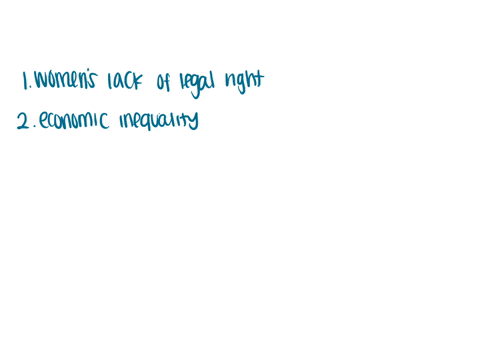 1. women's lack of legal right
2. economic inequality